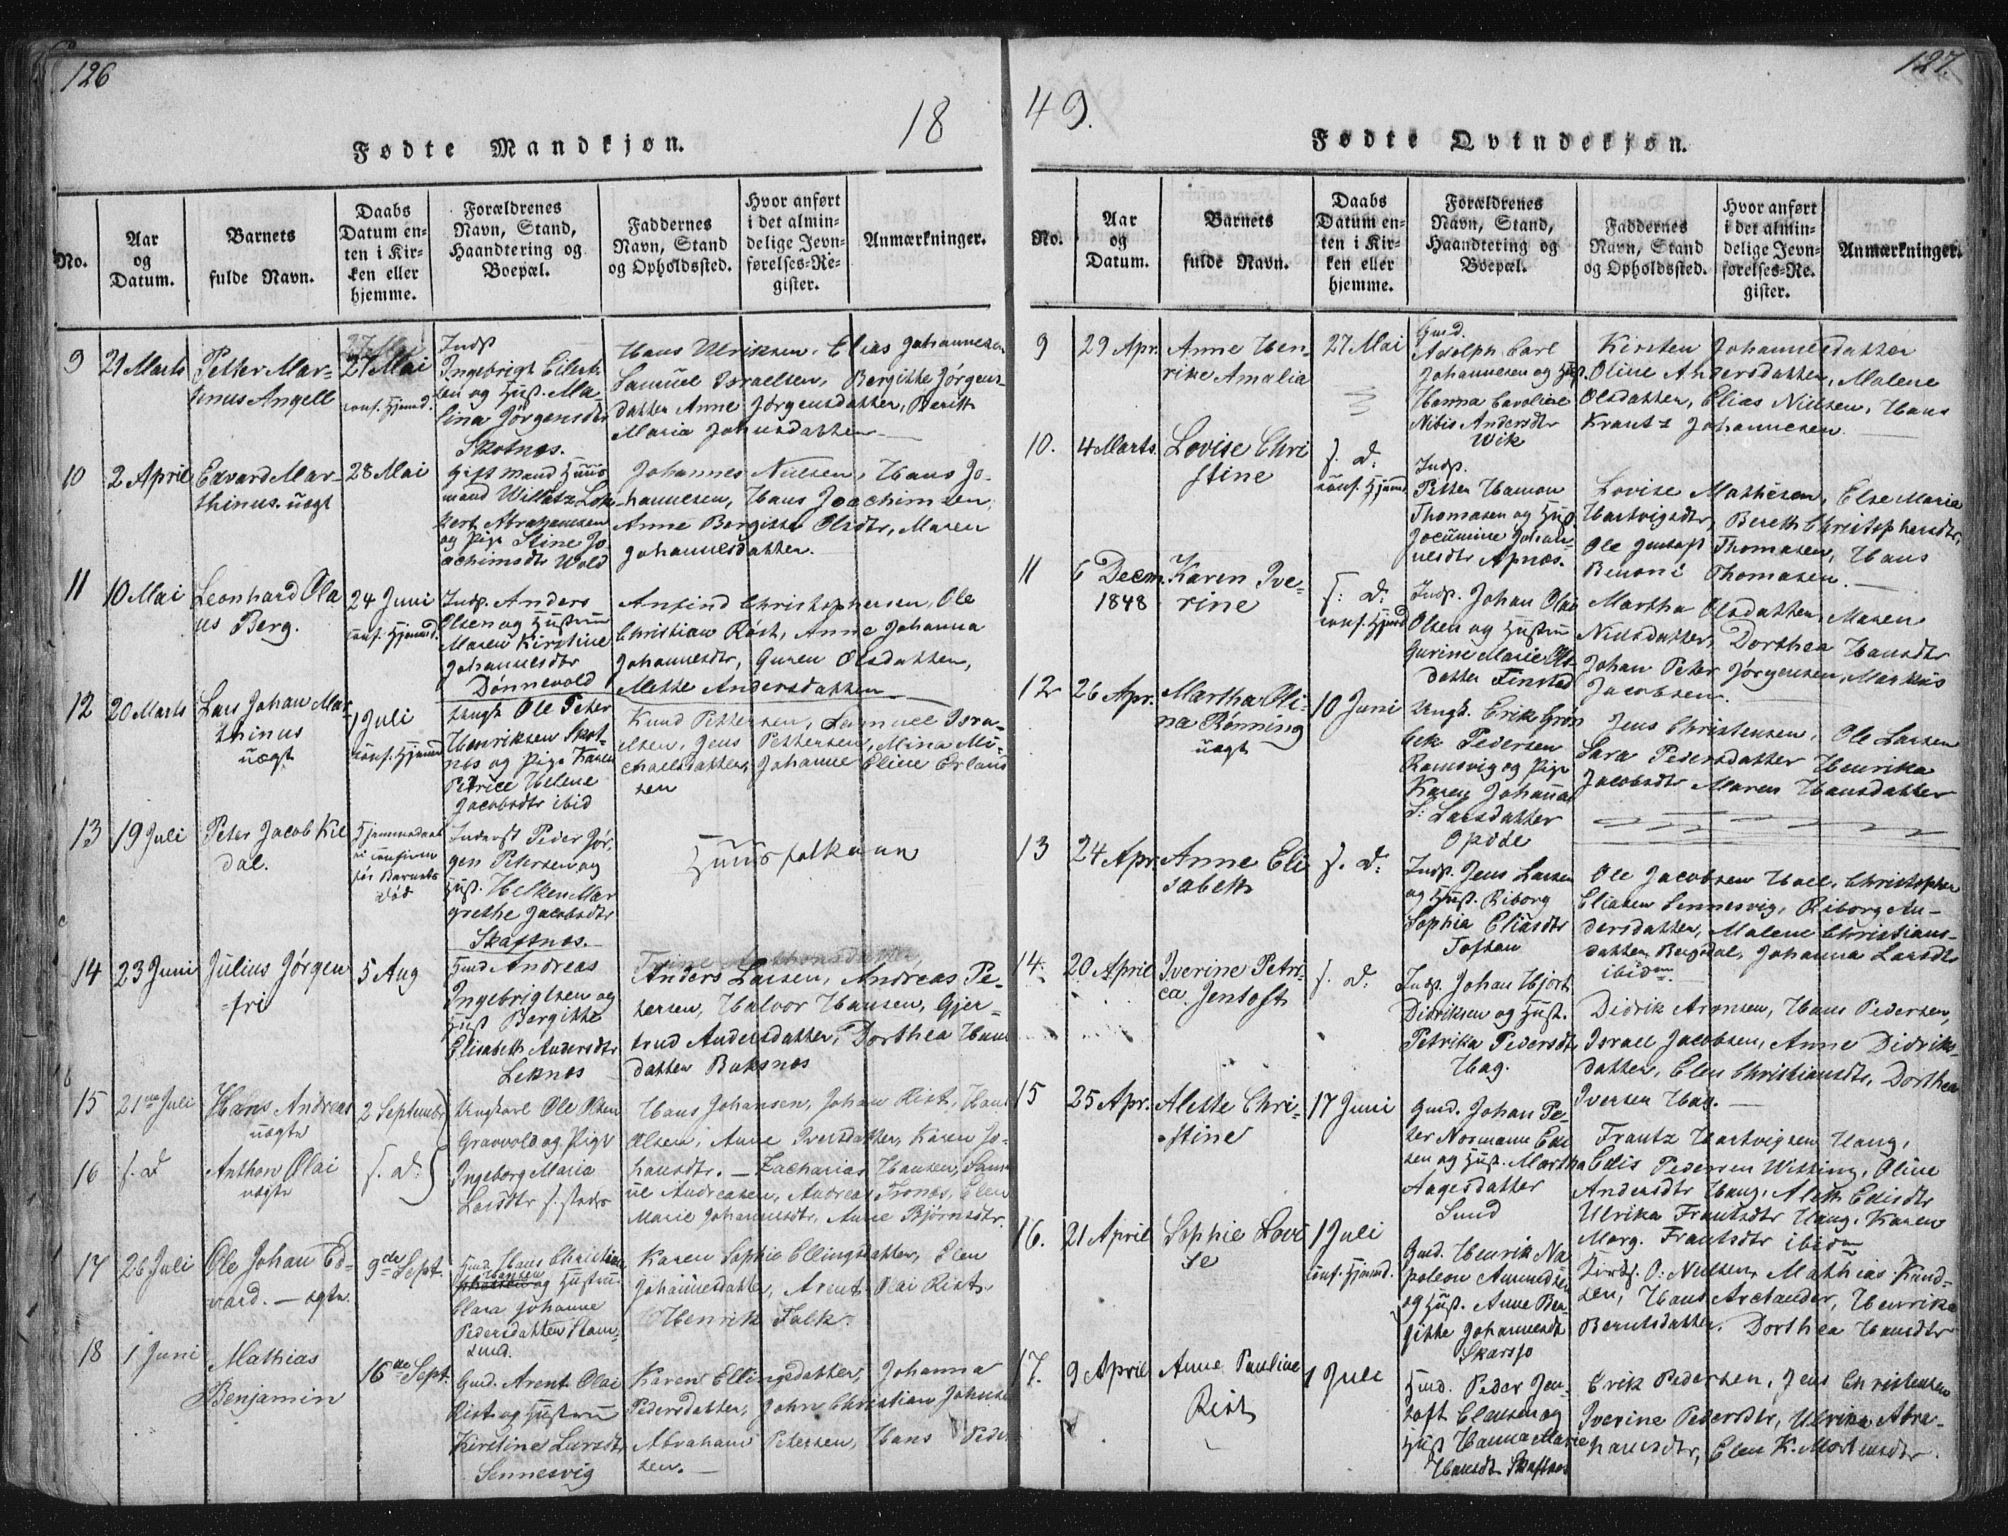 126
18
Fødte Mandkjøn.
No.
Aar og Datum.
Barnets fulde Navn.
Daabs Datum enten i Kirken eller hjemme.
Forældrenes Navn, Stand, Haandtering og Boepæl.
Faddernes Navn, Stand og Opholdssted.
Hvor anført i det almindelige Jevnførelses-Register.
Anmærkninger.
9
21 Marts
Petter Mar-
tinus Angell
27 Mai
conf. Hjemd.
Inds
Ingebrigt Eilert-
sen og Hust. Ma-
lina Jørgensdtr
Skotnæs.
Hans Ulriksen, Elias Johannesen
Samuel Israelsen, Bergitte Jørgens-
datter Anne Jørgensdatter, Berith
Maria Johnsdatter
10
2 April
Edvard Mar-
thinus. uægt
28 Mai
Gift Mand Huus
mand
og Pige Stine Jo
achimsdtr Wold
Johannes Nielsen, Hans Jo-
hannesen, Hans Joachimsen,
Anne Bergitte Olsdtr, Maren
Johannesdatter.
11
10 Mai
Leonhard Ola
us Berg.
24 Juni
conf. Hjemd.
Inds. Anders
Olsen og Hustru
Maren Kirstine
Johannesdtr
Dønnevold
Anfind Christophersen, Ole
Christian Røst, Anne Johanna
Johannesdtr, Guren Olsdatter,
Mette Andersdatter
12
20 Marts
Lars Johan Mar-
thinus
uægt
1 Juli
conf. Hjemd
Ungk Ole Peter
Henriksen Skot-
næs og Pige Karen
Petrice Helene
Jacobsdtr ibid
Knud Pettersen, Samuel Isra-
elsen, Jens Pettersen, Mina Mi-
chaelsdatter, Johanne Eline Erland
sen
13
19 Juli
Peter Jacob Kil
dal.
Hjemmedaab
ei confirm
før Barnets
Død
Inderst Peder Jør-
gen Petersen og
Hust. Helken Mar
grethe Jacobsdtr
Skaftnæs.
Huusfolkene
14
23 Juni
Julius Jørgen
fri
5 Aug
Hmd Andreas
Ingebrigtsen og
Hust Bergitte
Elisabeth Andersdtr
Leknæs
Anders Larsen, Andreas Pe-
tersen, Halvor Hansen, Gjer-
trud Andersdatter, Dorthea Hans
datter Buksnæs
15
21de Juli
Hans Andreas
uægte
2 Septemb
Ungkarl Ole Olsen
Gravvold og Pige
Ingeborg Maria
Larsdtr s. steds
Hans Johansen, Johan Rist, Hans
Olsen, Anne Iversdatter, Karen Jo-
hansdtr. – Zacharias Hansen, Samu
el Andreasen, Andreas Tronæs, Elen
Marie Johannesdtr, Anne Bjørnsdtr.
16
s. D
Anthon Olai
uægte
s. D.
17
26 Juli
Ole Johan Ed-
vard. – ægte
9de Sept.
Hmd Hans Christian
Hansen
og Hustru
Clara Johanne
Pedersdatter Stam-
sund.
Karen Sophie Ellingsdatter, Elen
Johannesdatter, Arent Olai Rist
Henrik Falk.
18
1 Juni
Mathias
Benjamin
16de Sept.
Gmd. Arent Olai
Rist og Hustru
Kirstine Larsdtr
Sennesvig
Karen Ellingsdatter, Johanna
Pedersdatter, John Christian Johnsen
Abraham Petersen, Hans Peder
sen. –
127.
49.
Fødte Qvindekjøn.
No.
Aar og Datum.
Barnets fulde Navn.
Daabs Datum enten i Kirken eller hjemme.
Forældrenes Navn, Stand, Haandtering og Boepæl.
Faddernes Navn, Stand og Opholdssted.
Hvor anført i det almindelige Jevnførelses-Register.
Anmærkninger.
9
29 Apr.
Anne Hen-
rike Amalia
27 Mai
Gmd.
Adolph Carl
Johannesen og Hust.
Hanna Caroline
Andersdtr
Wik
Kirsten Johannesdatter
Oline Andersdatter, Malene
Olsdatter, Elias Nielsen, Hans
Krantz Johannesen
10.
4 Marts.
Lovise Chri
stine
s. D.
conf. Hjemd
Inds.
Petter Hamon
Thomasen og Hust
Jocumine Johan-
nesdtr Apnæs.
Lovise Mathisen, Else Maria
Hartvigsdtr, Bereth Christophersdtr,
Ole Jentoft Thomasen, Hans
Benoni Thomasen
11
6 Decm
1848
Karen Ive-
rine
s. D.
conf. Hjemd
Inds. Johan Olai
Olsen og Hustru
Gurine Marie Ols-
datter Finstad
Martha Olsdatter, Maren
Nielsdatter, Dorthea Hansdtr
Johan Peter Jørgensen, Markus
Jacobsen
12
26 Apr.
Martha Oli-
na Rønning
uægt
10 Juni
Ungk. Erik Grøn
bek Pedersen
Ramsvig og Pige
Karen Johanna
S. Larsdatter
Opdøl
Jens Christensen, Ole Larsen
Sara Pedersdatter Henrika
Jacobsdtr Maren Hansdatter
13
24 Apr.
Anne Eli
sabeth
s. D.
Inds. Jens Larsen
og Hust. Riborg
Sophia Eliasdtr
Toften
Ole Jacobsen Hall, Christopher
Eliasen Sennesvig, Riborg An-
dersdatter, Malene Christians-
datter Bergsdal, Johanna Larsdtr
ibidm
14.
20 April
Iverine Petri-
ca. Jentoft
s. D.
Inds. Johan Hjort
Didriksen og Hust.
Petrika Pedersdtr
Hag.
Didrik Aronsen, Hans Pedersen,
Israel Jacobsen, Anne Didriks-
datter, Elen Christiansdtr, Dorthea
Iversen Hag. –
15
25 Apr.
Alette Chri-
stine
17 Juni
Gmd. Johan Pe-
ter Normann Edi
sen og Hust. Martha
Aagesdatter
Sund
Frantz Hartvigsen Haug,
Edis Pedersen Witting, Oline
Andersdtr Haug, Aleth Edisdtr
Ulrika Frantsdtr Haug, Karen
Marg. Frantsdtr ibidm
16.
21 April
Sophie Lovi
se
1 Juli
conf. Hjemd.
Gmd. Henrik Na-
poleon Amundsen
og Hust. Anne Ber-
gitte Johannesdtr
Skarsjø
O. Nielsen, Mathias Knud-
sen, Hans Arctander, Henrika
Berntsdatter. Dorthea Hansdtr
17.
9 April
Anne Pauline
Rist
1 Juli
Hmd. Peder Jen-
toft Clausen og
Hust Hanna Marie
Hansdtr Skaftnæs
Erik Pedersen, Jens Christensen
Iverine Pedersdtr, Ulrika Abra-
hamsdtr, Elen K. Mortensdtr.